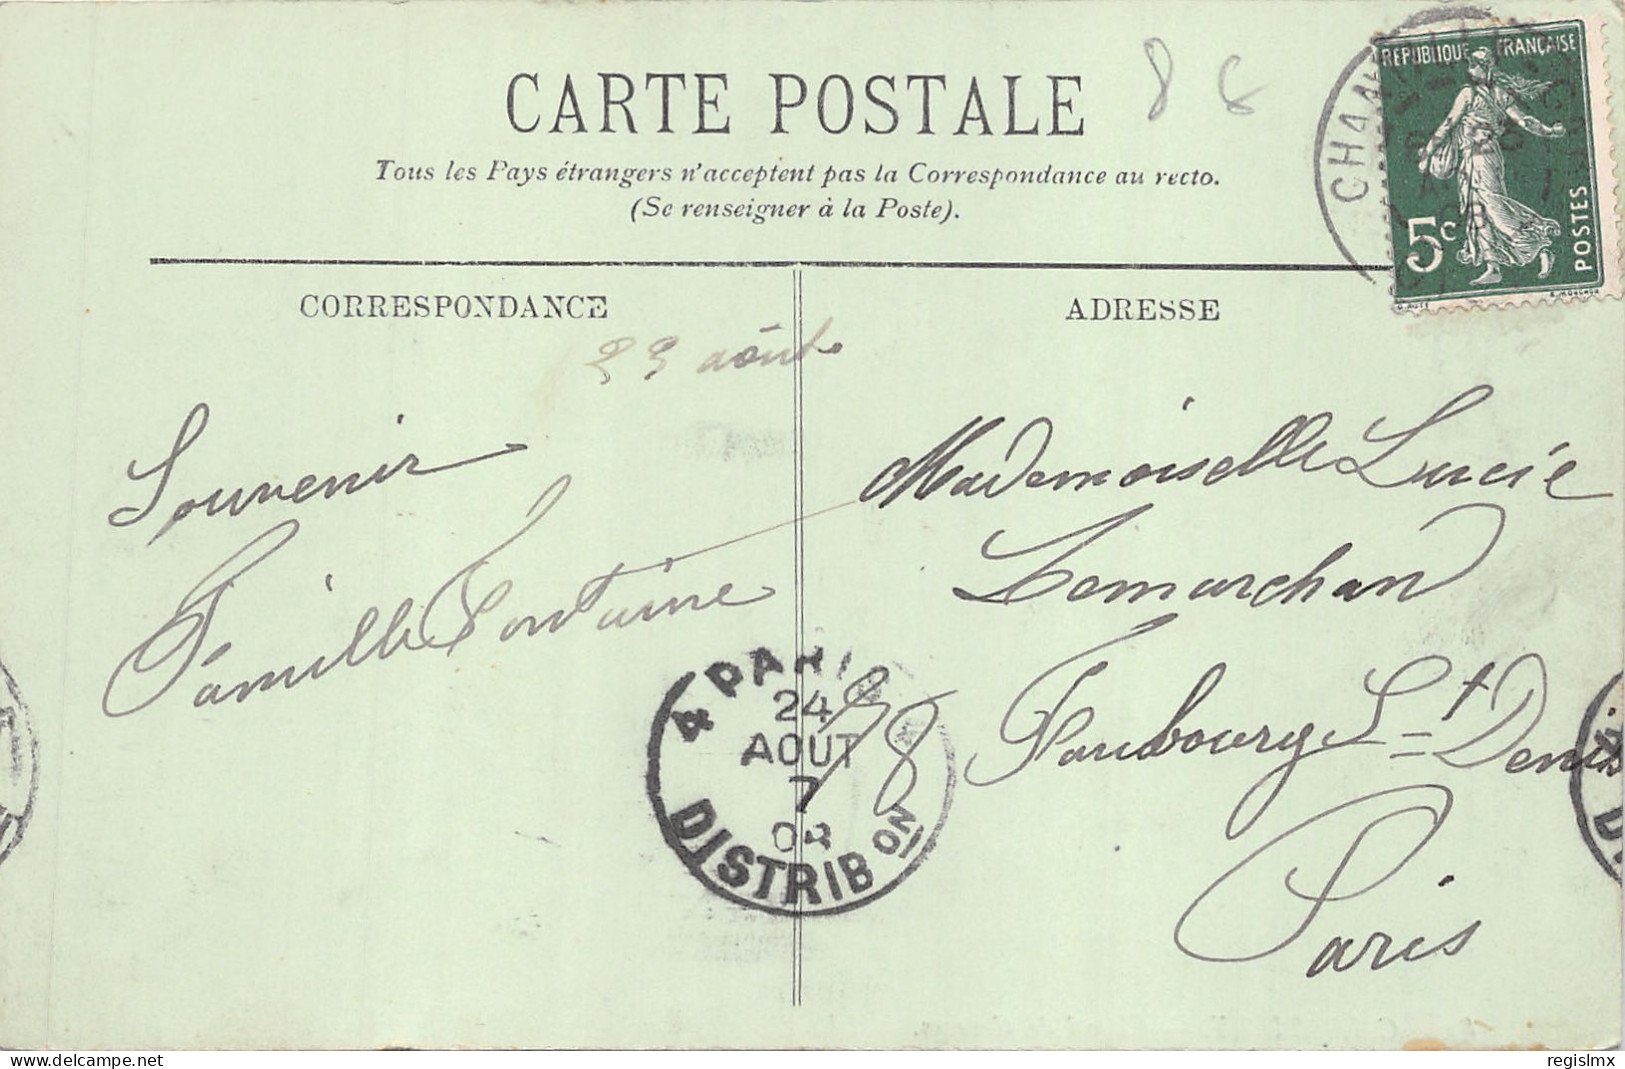 CARTE POSTALE
8 8
Tous les Pays étrangers n'acceptent pas la Correspondance au recto.
(Se renseigner à la Poste).
REPUBLIQUE FRANÇAISE
5c
POSTES
CORRESPONDANCE
ADRESSE
23 août
Souvenir
Famille Fontaine
Mademoiselle Lucie
Lemarchand
Faubourg St Denis
98
Paris
4 PARIS
24
AOUT
7
08
DISTRIBON
regislmx